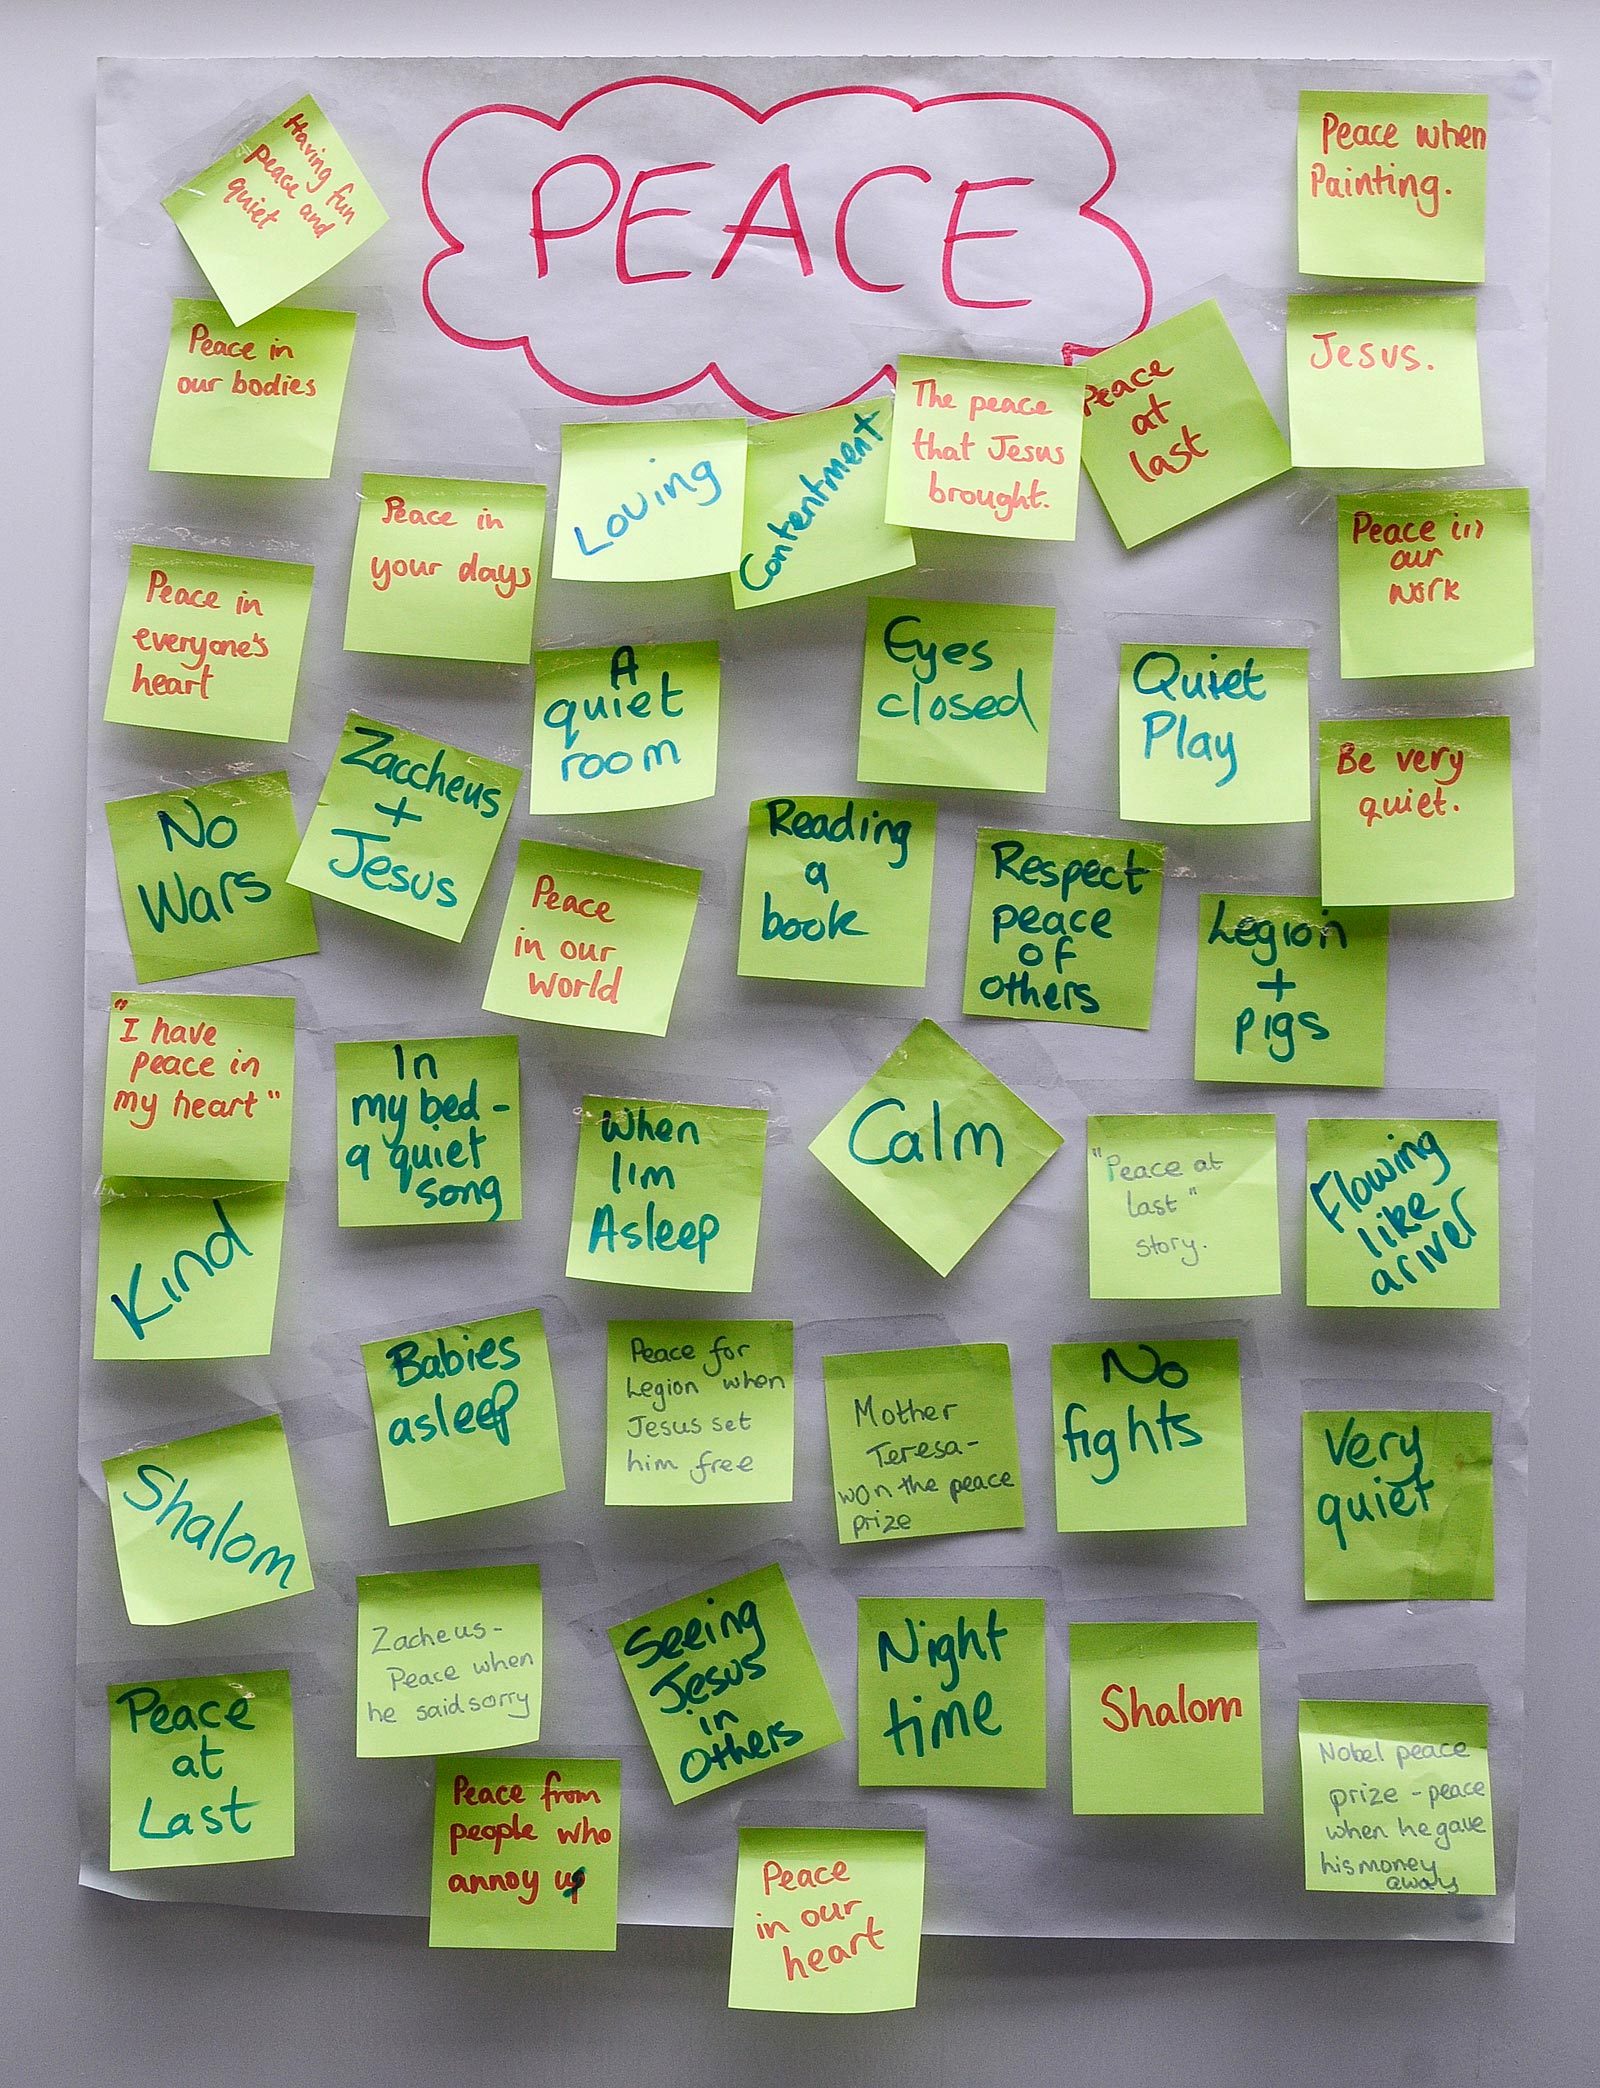 PEACE
Having fun
peace and
quiet
Peace when
Painting.
Peace in
our bodies
Jesus.
Peace
at
last
The peace
that Jesus
brought.
Contentment
Loving
Peace in
your days
Peace in
our
work
Peace in
everyone's
heart
A
quiet
room
Eyes
closed
Quiet
Play
Be very
quiet.
No
Wars
Zaccheus
+
Jesus
Peace
in our
World
Reading
a
book
Respect
peace
of
others
Legion
+
pigs
"I have
peace in
my heart"
In
my bed -
a quiet
song
When
I'm
Asleep
Calm
"Peace at
last"
story.
Flowing
like
a river
Kind
Babies
asleep
Peace for
Legion when
Jesus set
him free
Mother
Teresa-
won the peace
prize
No
fights
Very
quiet
Shalom
Zacheus-
Peace when
he said sorry
Seeing
Jesus
in
others
Night
time
Shalom
Nobel peace
prize - peace
when he gave
his money
away
Peace
at
Last
Peace from
people who
annoy
Peace
in our
heart